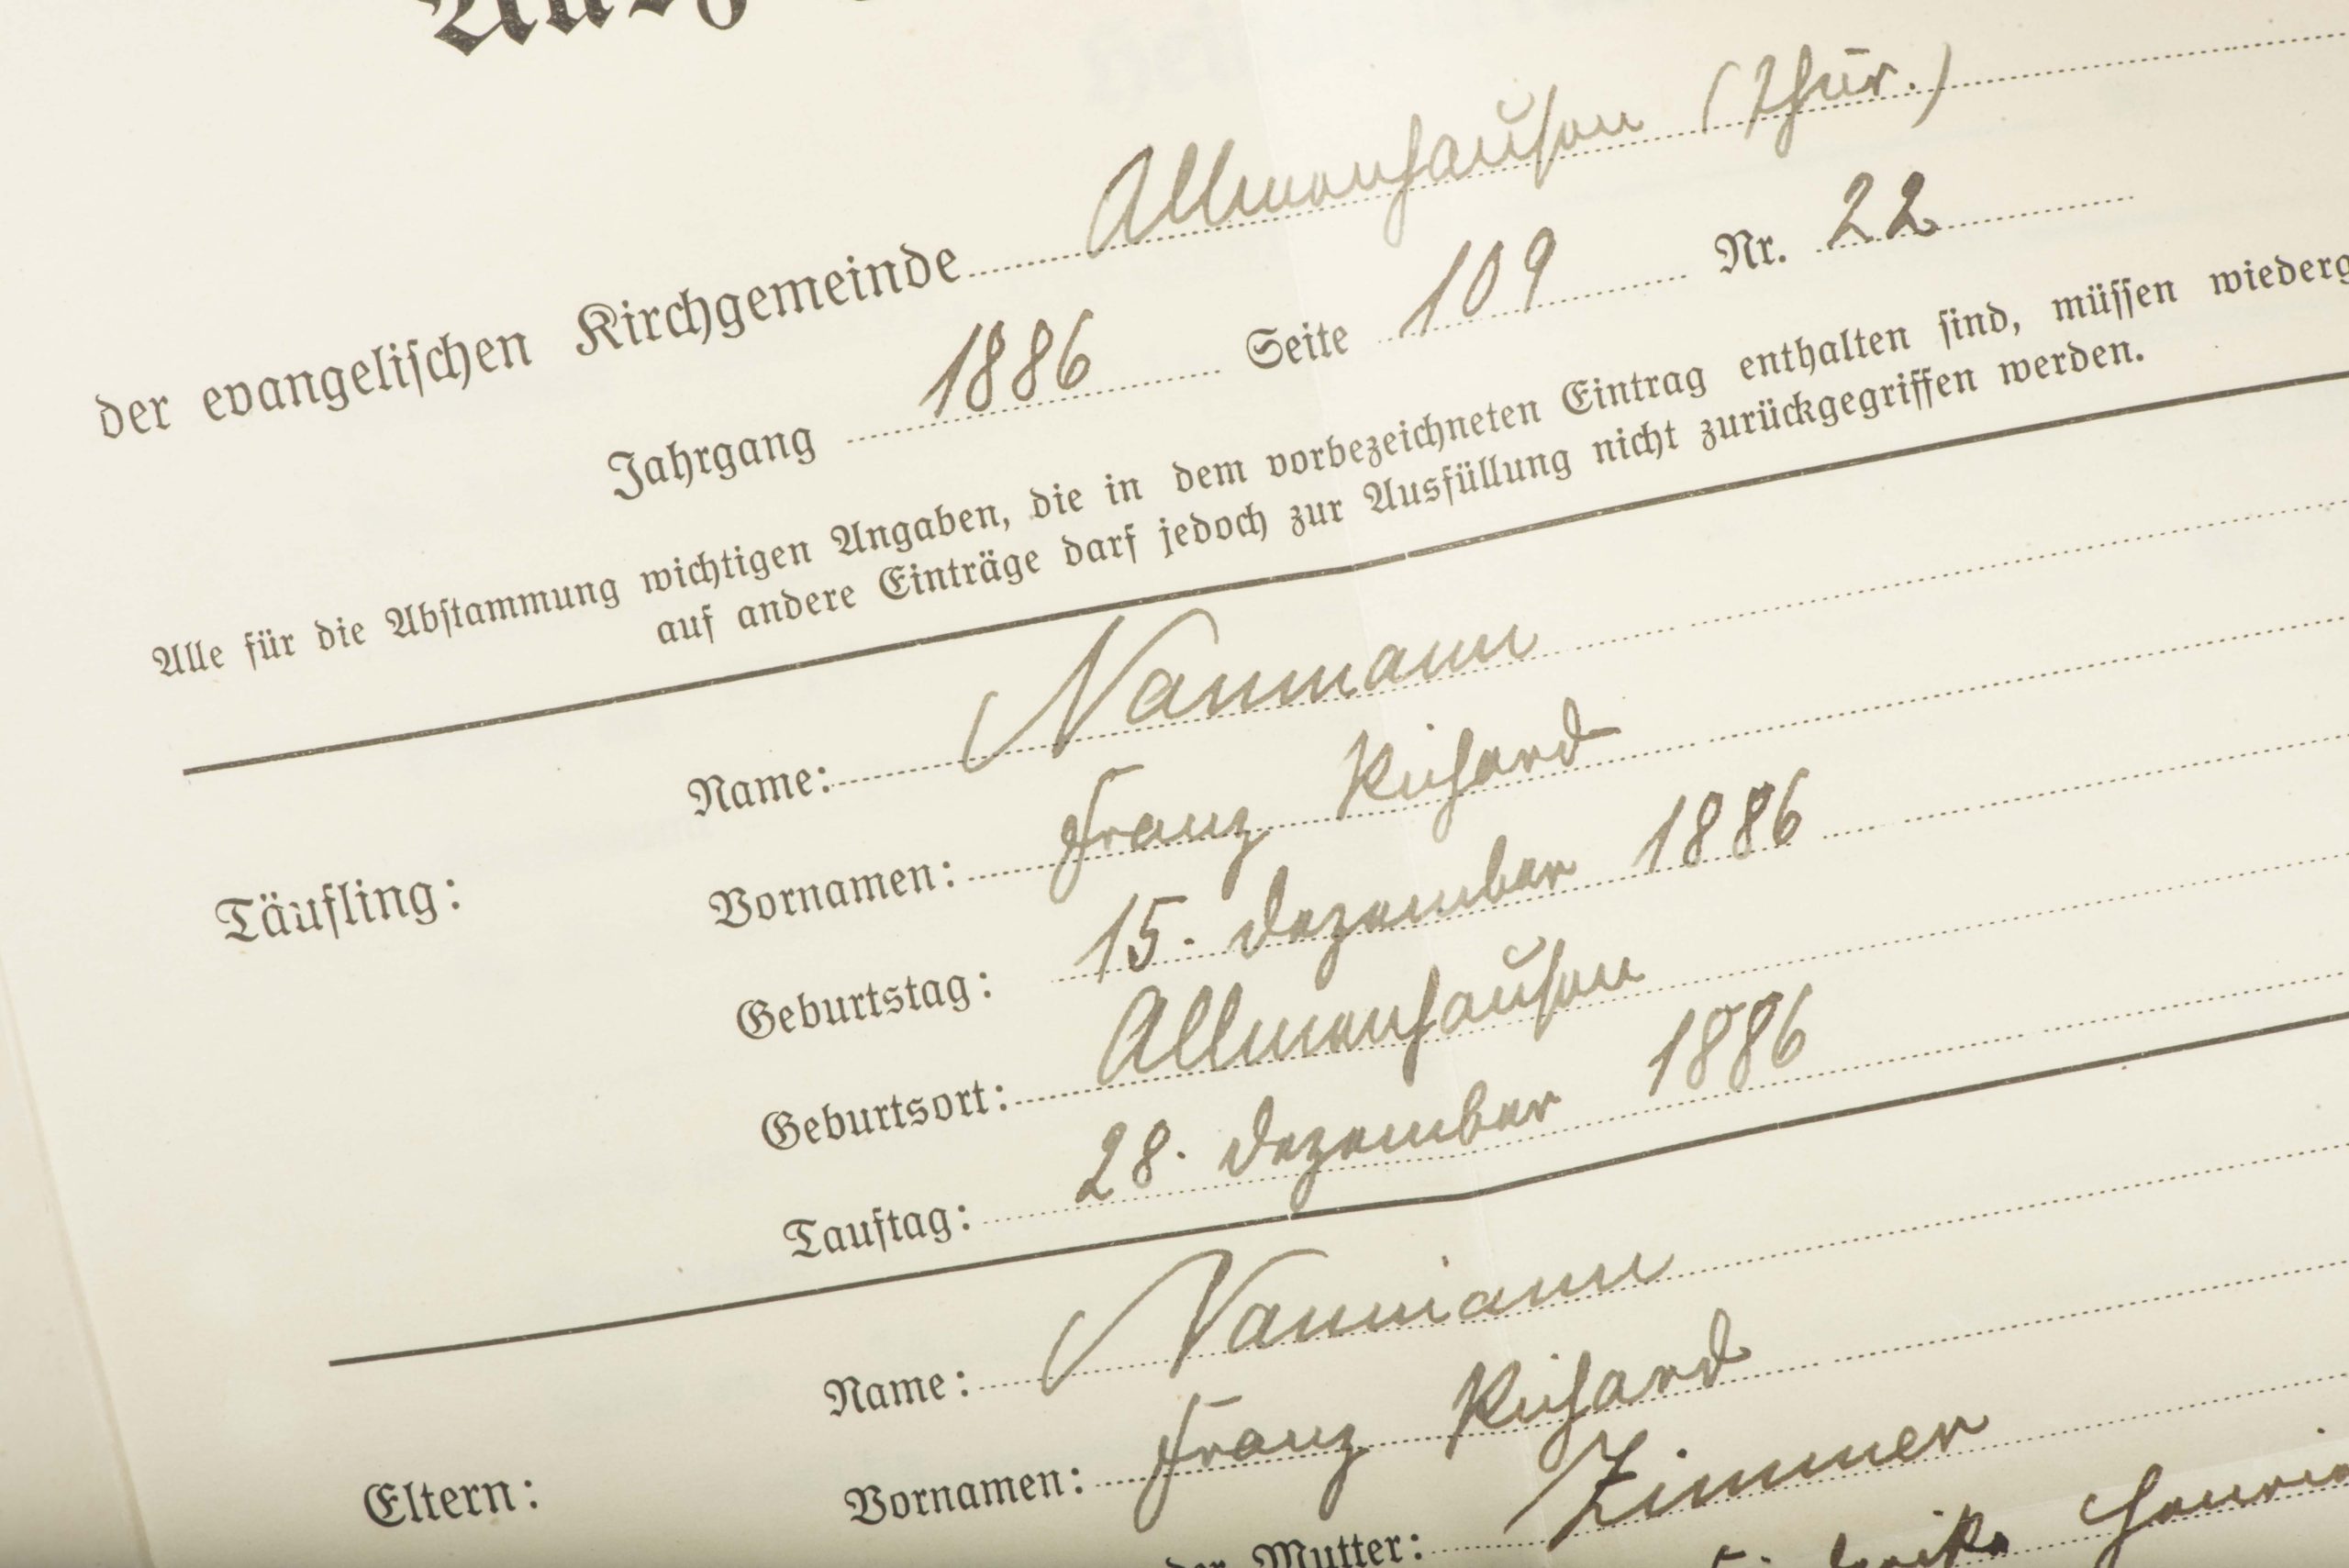 der evangelischen Kirchgemeinde Allmenhausen (Thür.)
Jahrgang 1886 Seite 109 Nr. 22
Alle für die Abstammung wichtigen Angaben, die in dem vorbezeichneten Eintrag enthalten sind, müssen
auf andere Einträge darf jedoch zur Ausfüllung nicht zurückgegriffen werden.
Name: Naumann
Täufling: Vornamen: Franz Richard
Geburtstag: 15. Dezember 1886
Geburtsort: Allmenhausen
Tauftag: 28. Dezember 1886
Name: Naumann
Eltern: Vornamen: Franz Richard
der Mutter: Zimmer